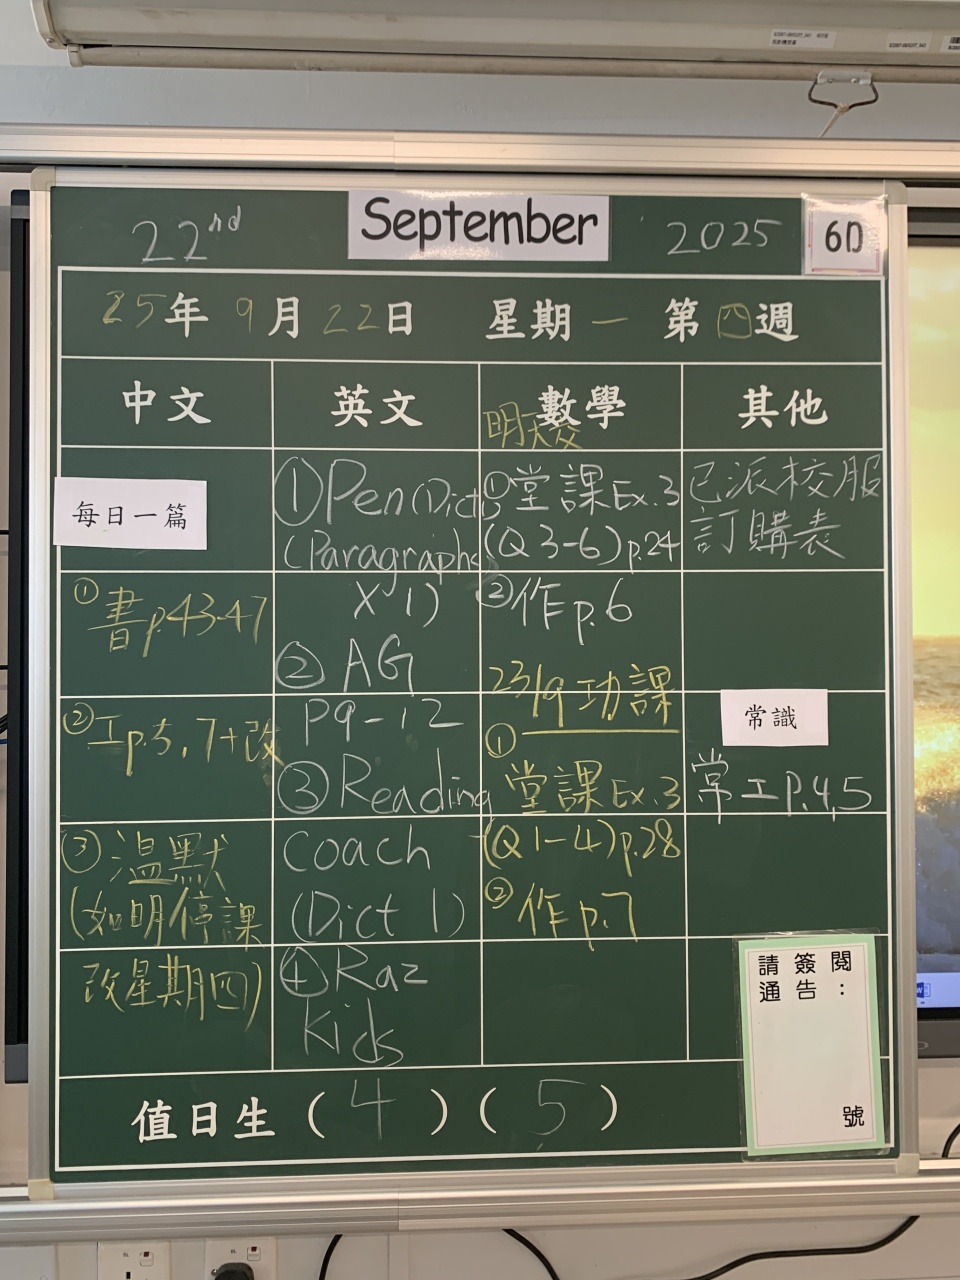 22nd September 2025 6D
25年9月22日 星期一 第四週
中文 英文 數學 其他
每日一篇
①書p.43-47
②工p.5, 7+改
③溫默
(如明停課
改星期四)
①Pen(Dict
(Paragraphs
X 1)
②AG
P9-12
③Reading
Coach
(Dict 1)
④Raz
Kids
明天交
①堂課Ex.3
(Q3-6)p.24
②作p.6
23/9功課
①
堂課Ex.3
(Q1-4)p.28
②作p.7
已派校服
訂購表
常識
常工P.4,5
請簽閱
通告：
號
值日生(4)(5)